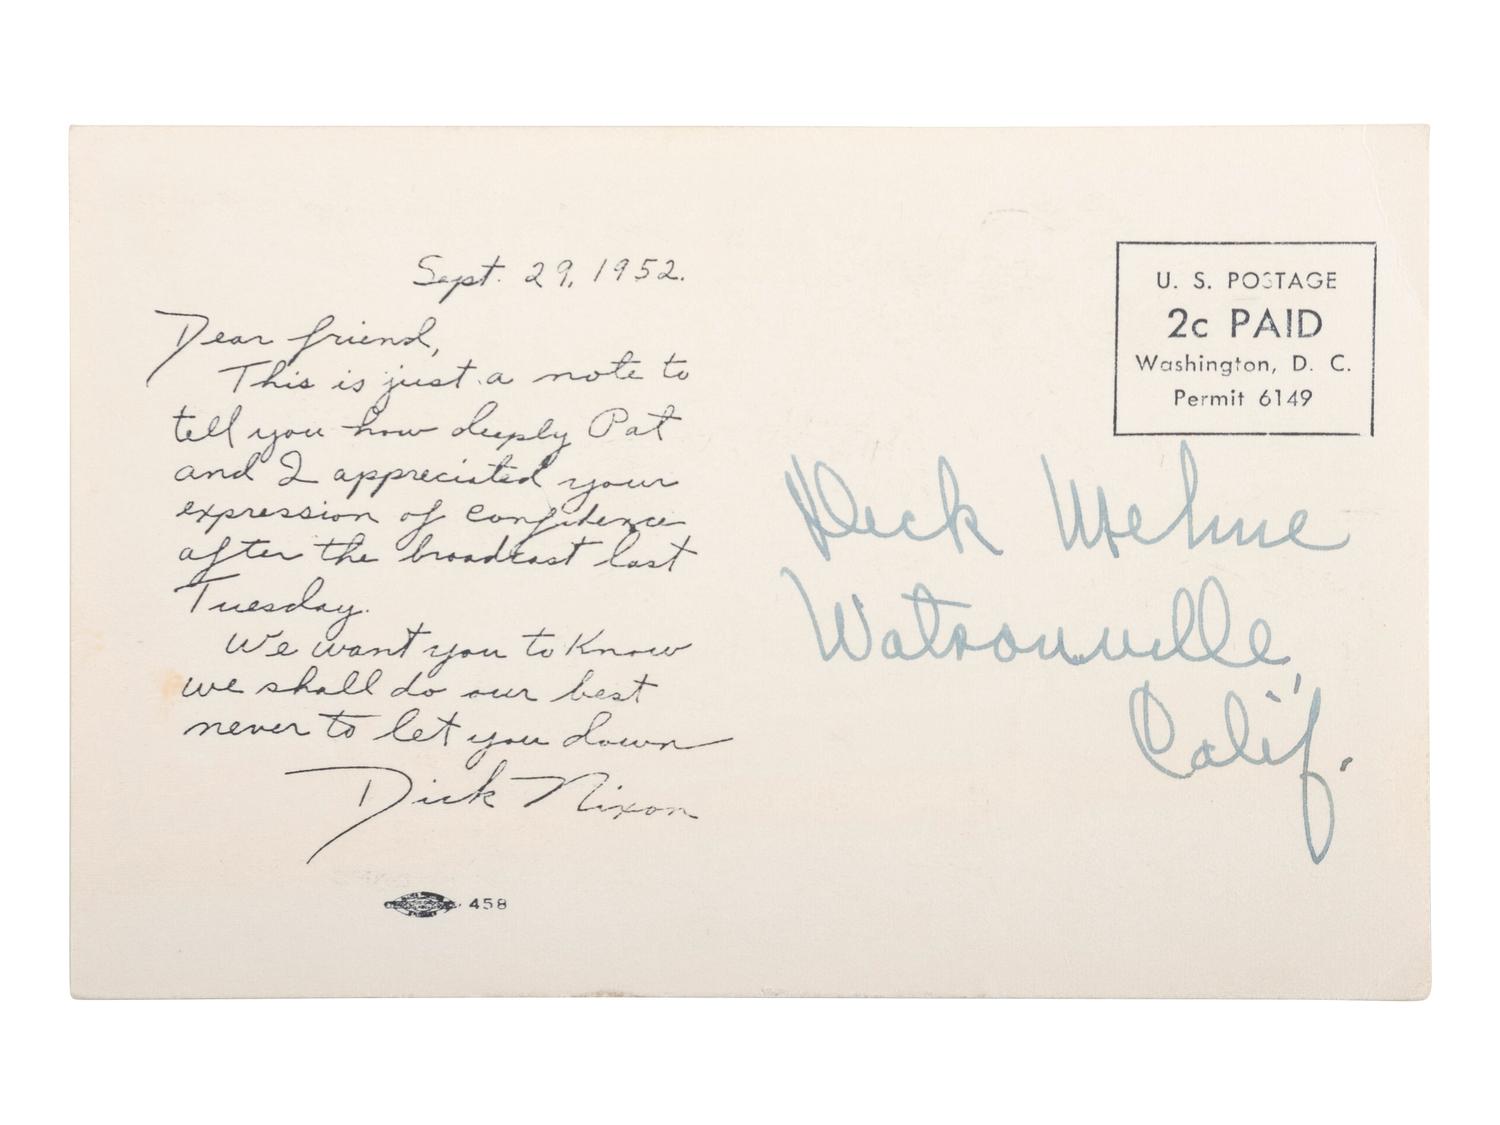 Sept. 29, 1952.
Dear friend,
This is just a note to
tell you how deeply Pat
and I appreciated your
expression of confidence
after the broadcast last
Tuesday.
We want you to know
we shall do our best
never to let you down
Dick Nixon
458
U. S. POSTAGE
2c PAID
Washington, D. C.
Permit 6149
Watsonville,
Calif.